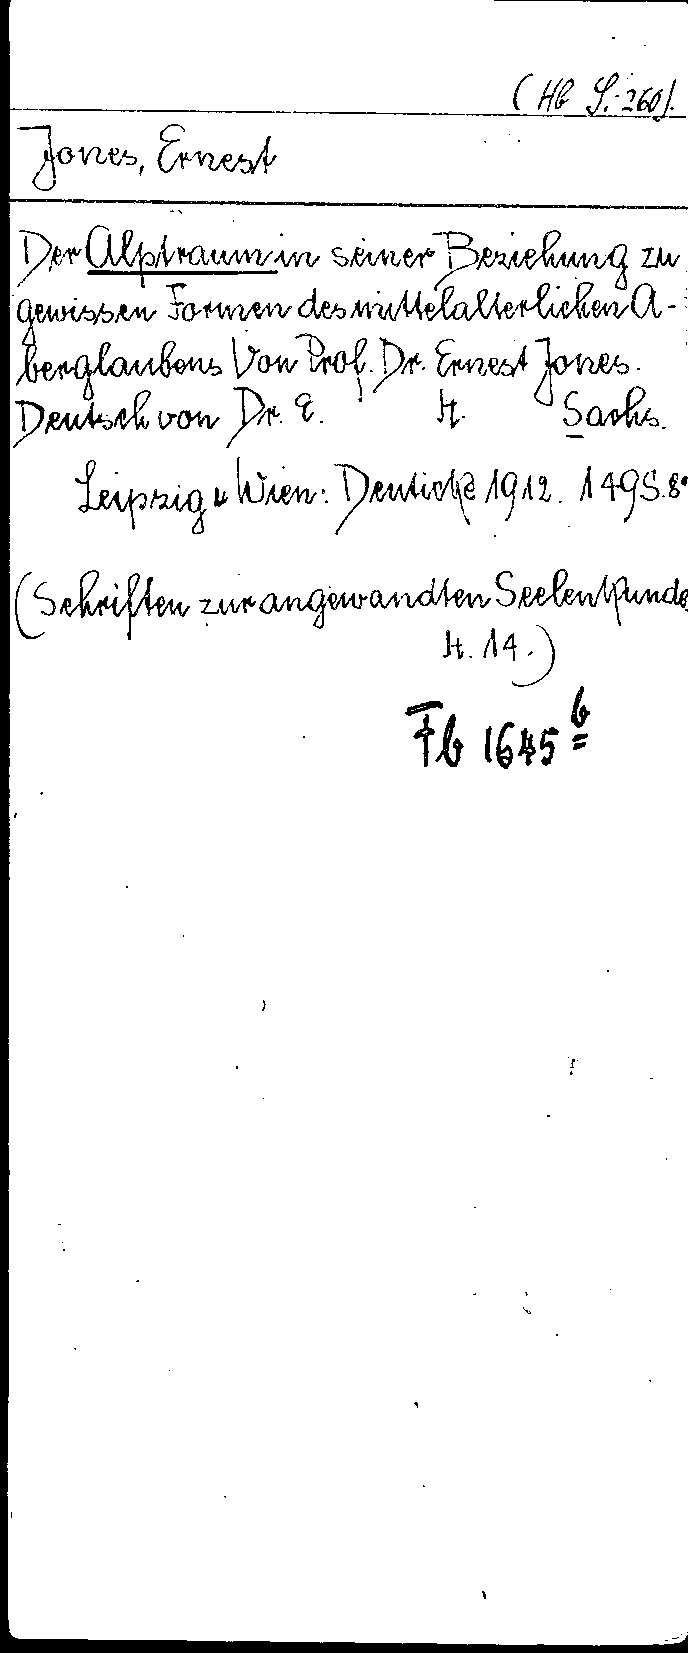 (Hb S. 260).
Jones, Ernest
Der Alptraum in seiner Beziehung zu
gewissen Formen des mittelalterlichen A-
berglaubens Von Prof. Dr. Ernest Jones.
Deutsch von Dr. E. H. Sachs.
Leipzig u Wien: Deuticke 1912. 149 S. 8°
(Schriften zur angewandten Seelenkunde
H. 14.)
Fb 1645 b